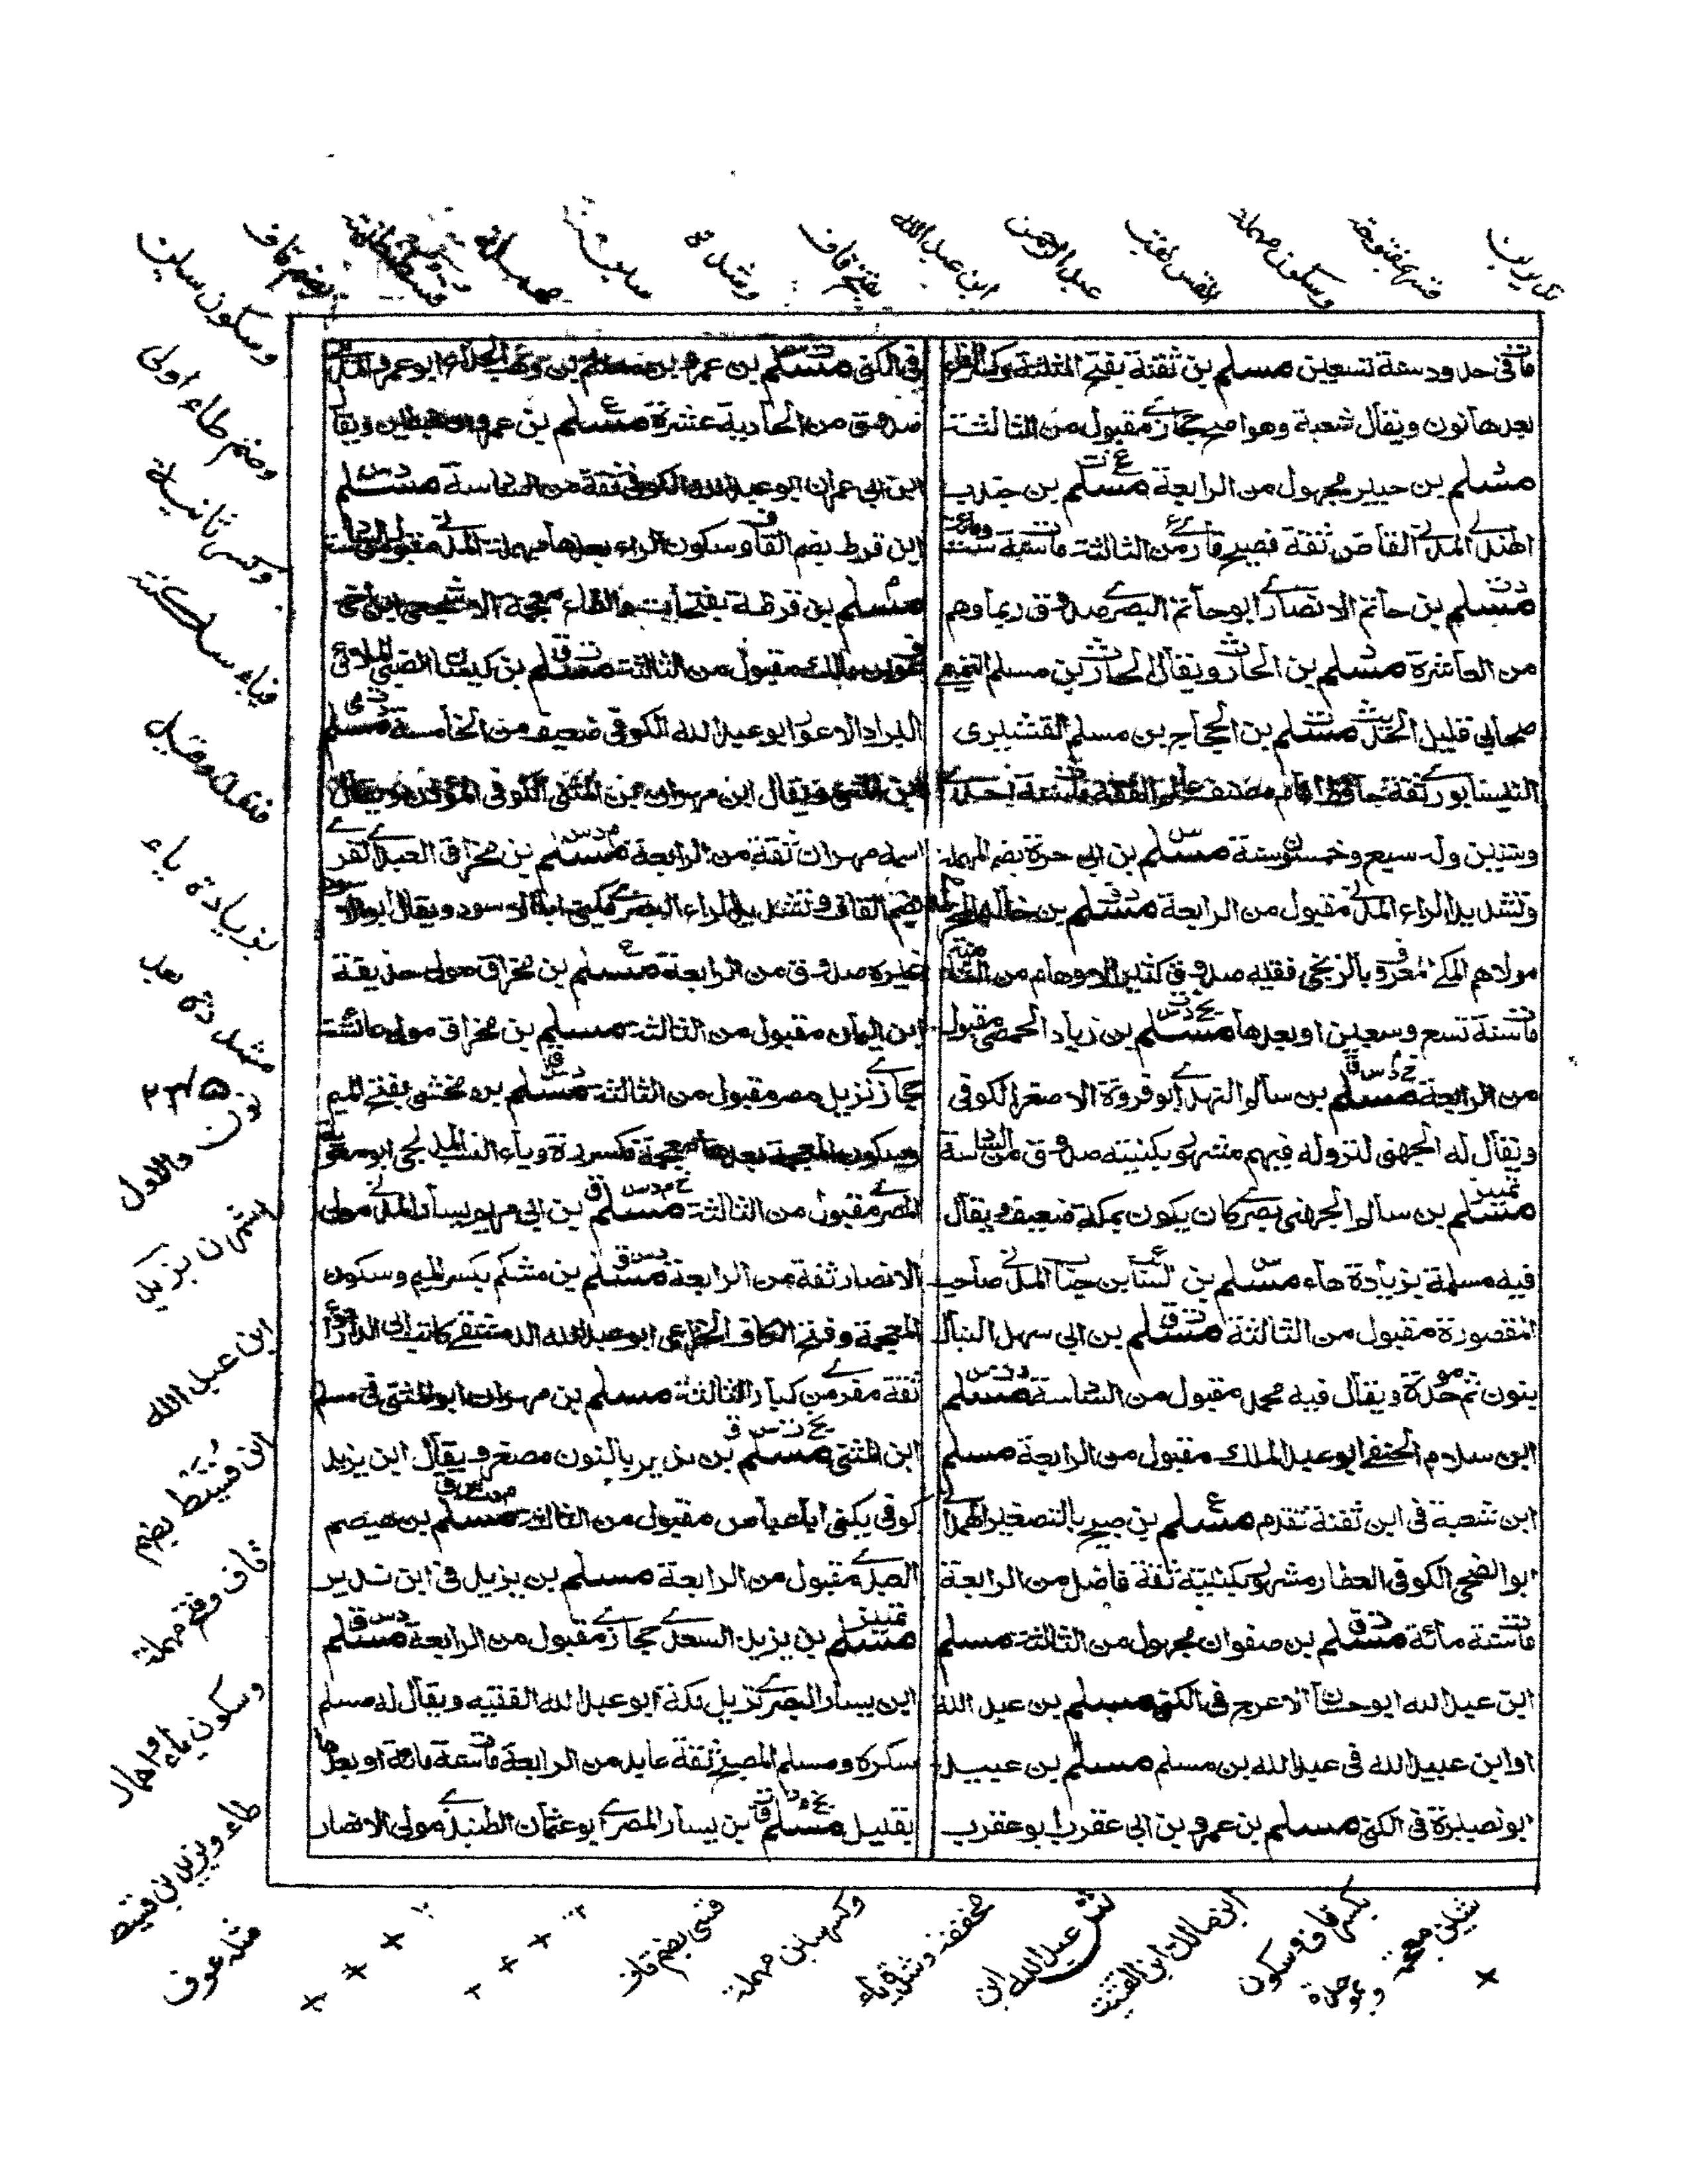 مات في حدود سنة تسعين مسلم بن ثفنة بفتح المثلثة وكسر الفاء
بعدها نون ويقال شعبة وهو اصح حجازي مقبول من الثالثة
مسلم بن جبير مجهول من الرابعة مسلم بن جندب
الهذلي المدني القاص ثقة فصيح قارئ من الثالثة مات سنة ست ومائة
مسلم بن حاتم الانصاري ابو حاتم البصري صدوق ربما وهم
من العاشرة مسلم بن الحارث ويقال الحارث بن مسلم التميمي
صحابي قليل الحديث مسلم بن الحجاج بن مسلم القشيري
النيسابوري ثقة حافظ امام مصنف عالم بالفقه مات سنة احدى
وستين وله سبع وخمسون سنة مسلم بن ابي حرة بضم المهملة
وتشديد الراء المدني مقبول من الرابعة مسلم بن خالد المخزومي
مولاهم المكي المعروف بالزنجي فقيه صدوق كثير الاوهام من الثامنة
مات سنة تسع وسبعين او بعدها مسلم بن زياد الحمصي مقبول
من الرابعة مسلم بن سالم النهدي ابو فروة الاصغر الكوفي
ويقال له الجهني لنزوله فيهم مشهور بكنيته صدوق من السادسة
مسلم بن سالم الجهني بصري كان يكون بمكة ضعيف ويقال
فيه مسلمة بزيادة هاء مسلم بن السائب بن خباب المدني صاحب
المقصورة مقبول من الثالثة مسلم بن ابي سهل النبال
بنون ثم موحدة ويقال فيه محمد مقبول من السادسة مسلم
ابن سلام الحنفي ابو عبد الملك مقبول من الرابعة مسلم
ابن شعبة في ابن ثفنة تقدم مسلم بن صبيح بالتصغير الهمداني
ابو الضحى الكوفي العطار مشهور بكنيته ثقة فاضل من الرابعة
مات سنة مائة مسلم بن صفوان مجهول من الثالثة مسلم
ابن عبد الله ابو حسان الاعرج في الكنى مسلم بن عبد الله
او ابن عبيد الله في عبيد الله بن مسلم مسلم بن عبيد
ابو نصيرة في الكنى مسلم بن عمرو بن ابي عقرب ابو عقرب
في الكنى مسلم بن عمرو بن مسلم بن وهب الحذاء ابو عمرو المديني
صدوق من الحادية عشرة مسلم بن عمران البطين ويقال
ابن ابي عمران ابو عبد الله الكوفي ثقة من السادسة مسلم
ابن قرط بضم القاف وسكون الراء بعدها مهملة المدني مقبول من السادسة
مسلم بن قرظة بفتحات والظاء معجمة الاشجعي ابن اخي
عوف بن مالك مقبول من الثالثة مسلم بن كيسان الضبي الملائي
البراد الاعور ابو عبد الله الكوفي ضعيف من الخامسة مسلم
ابن المثنى ويقال ابن مهران بن المثنى الكوفي المؤذن ويقال
اسمه مهران ثقة من الرابعة مسلم بن مخراق العبدي القري
بضم القاف وتشديد الراء البصري يكنى ابا الاسود ويقال ابو
غيره صدوق من الرابعة مسلم بن مخراق مولى حذيفة
ابن اليمان مقبول من الثالثة مسلم بن مخراق مولى عائشة
حجازي نزيل مصر مقبول من الثالثة مسلم بن مخشي بفتح الميم
وسكون المعجمة بعدها معجمة مكسورة وياء النسب المدلجي ابو معاوية
المصري مقبول من الثالثة مسلم بن ابي مريم يسار المدني مولى
الانصار ثقة من الرابعة مسلم بن مشكم بكسر الميم وسكون
المعجمة وفتح الكاف الخزاعي ابو عبيد الله الدمشقي كاتب ابي الدرداء
ثقة مقرئ من كبار الثالثة مسلم بن مهران ابو المثنى في مسلم
ابن المثنى مسلم بن نذير بالنون مصغر ويقال ابن يزيد
كوفي يكنى ابا عياض مقبول من الثالثة مسلم بن هيصم
العبدي مقبول من الرابعة مسلم بن يزيد في ابن نذير
مسلم بن يزيد السعدي حجازي مقبول من الرابعة مسلم
ابن يسار البصري نزيل مكة ابو عبد الله الفقيه ويقال له مسلم
سكرة ومسلم المصبح ثقة عابد من الرابعة مات سنة مائة او بعدها
بقليل مسلم بن يسار المصري ابو عثمان الطنبذي مولى الانصار
وسكون سين
وضم طاء اولى
وكسر ثانية
فياء ساكنة
فنون وقيل
بزيادة ياء
مشددة بعد
نون والاول
اشهر ان يزيد
ابن عبد الله
ابن قسيط بضم
قاف وفتح مهملة
وسكون ياء واهمال
طاء ويزيد بن قسيط
مثله عوف